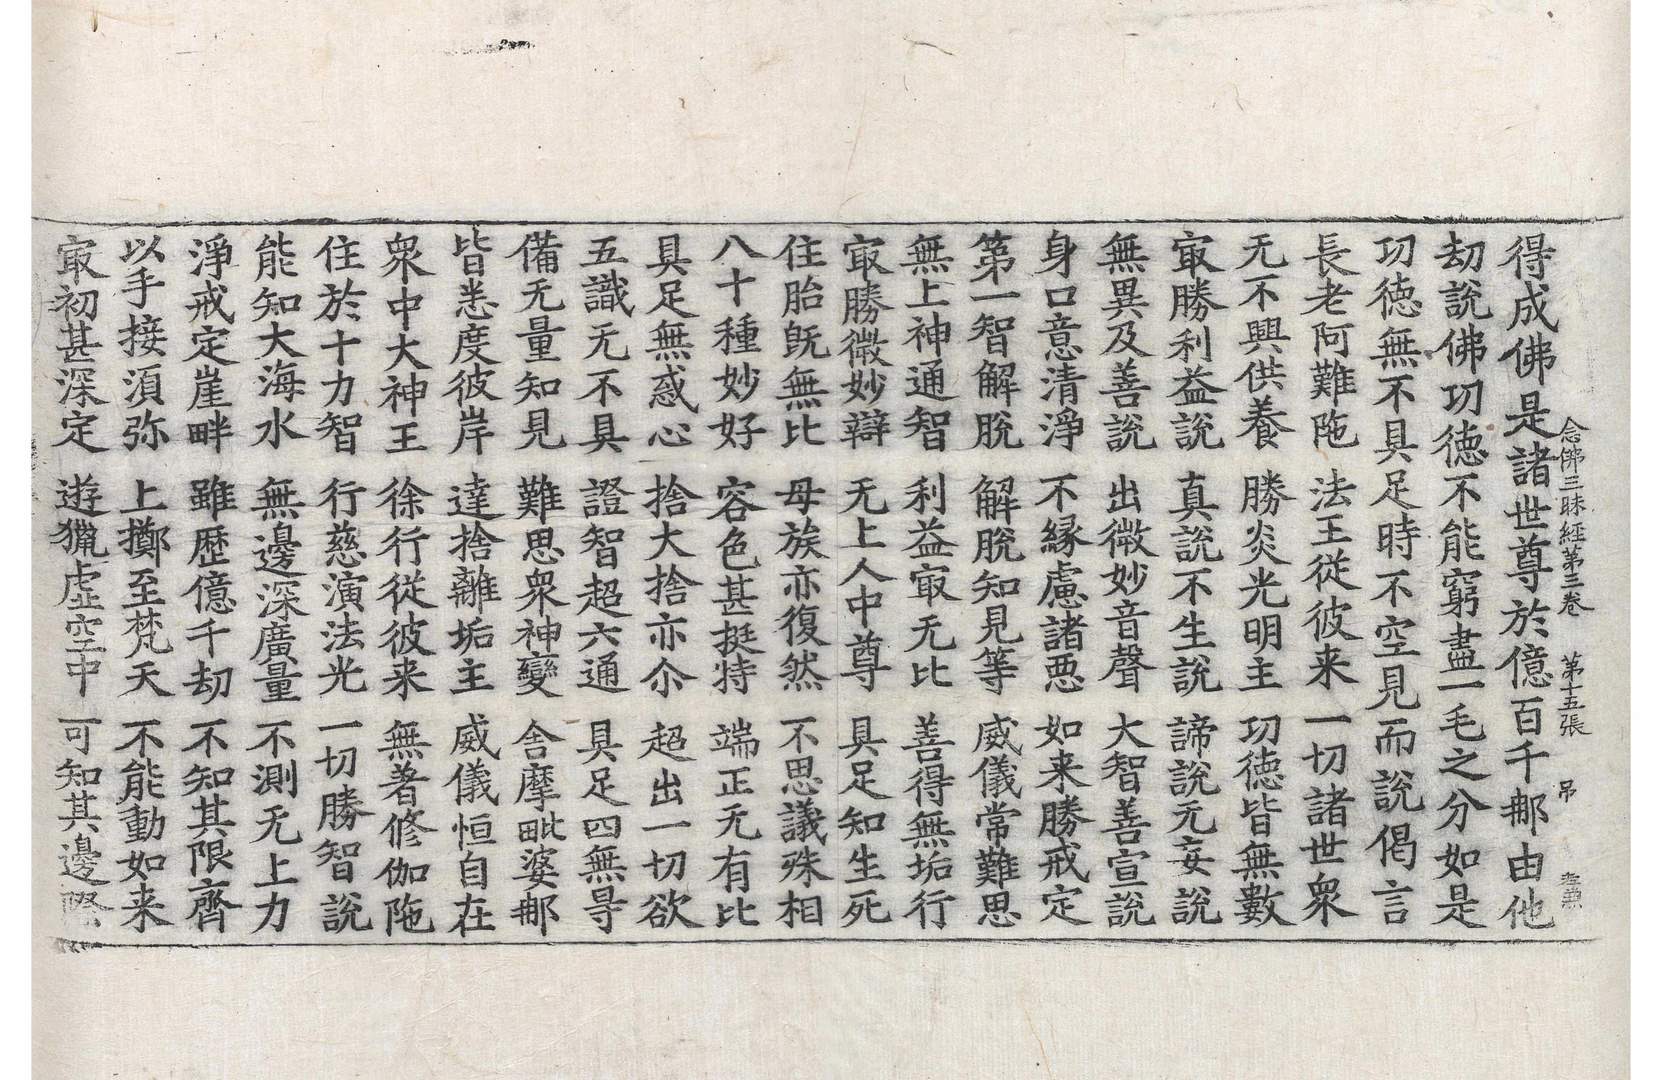 念佛三昧経第三卷　第十五張　弔
得成佛是諸世尊於億百千𨚗由他
劫說佛功徳不能窮盡一毛之分如是
功徳無不具足時不空見而說偈言
長老阿難陁　法王従彼来　一切諸世衆
无不興供養　勝炎光明主　功徳皆無數
㝡勝利益說　真說不生說　諦說无妄說
無異及善說　出微妙音聲　大智善宣說
身口意清淨　不縁慮諸惡　如来勝戒定
第一智解脫　解脫知見等　威儀常難思
無上神通智　利益㝡无比　善得無垢行
㝡勝微妙辯　无上人中尊　具足知生死
住胎旣無比　母族亦復然　不思議殊相
八十種妙好　容色甚挺特　端正无有比
具足無惑心　捨大捨亦尒　超出一切欲
五識无不具　證智超六通　具足四無㝵
備无量知見　難思衆神變　舎摩毗婆𨚗
皆悉度彼岸　達捨離垢主　威儀恒自在
衆中大神王　徐行従彼来　無著修伽陁
住於十力智　行慈演法光　一切勝智說
能知大海水　無邊深廣量　不測无上力
淨戒定崖畔　雖歴億千劫　不知其限齊
以手接湏弥　上擲至梵天　不能動如来
㝡初甚深定　遊獵虛空中　可知其邊際